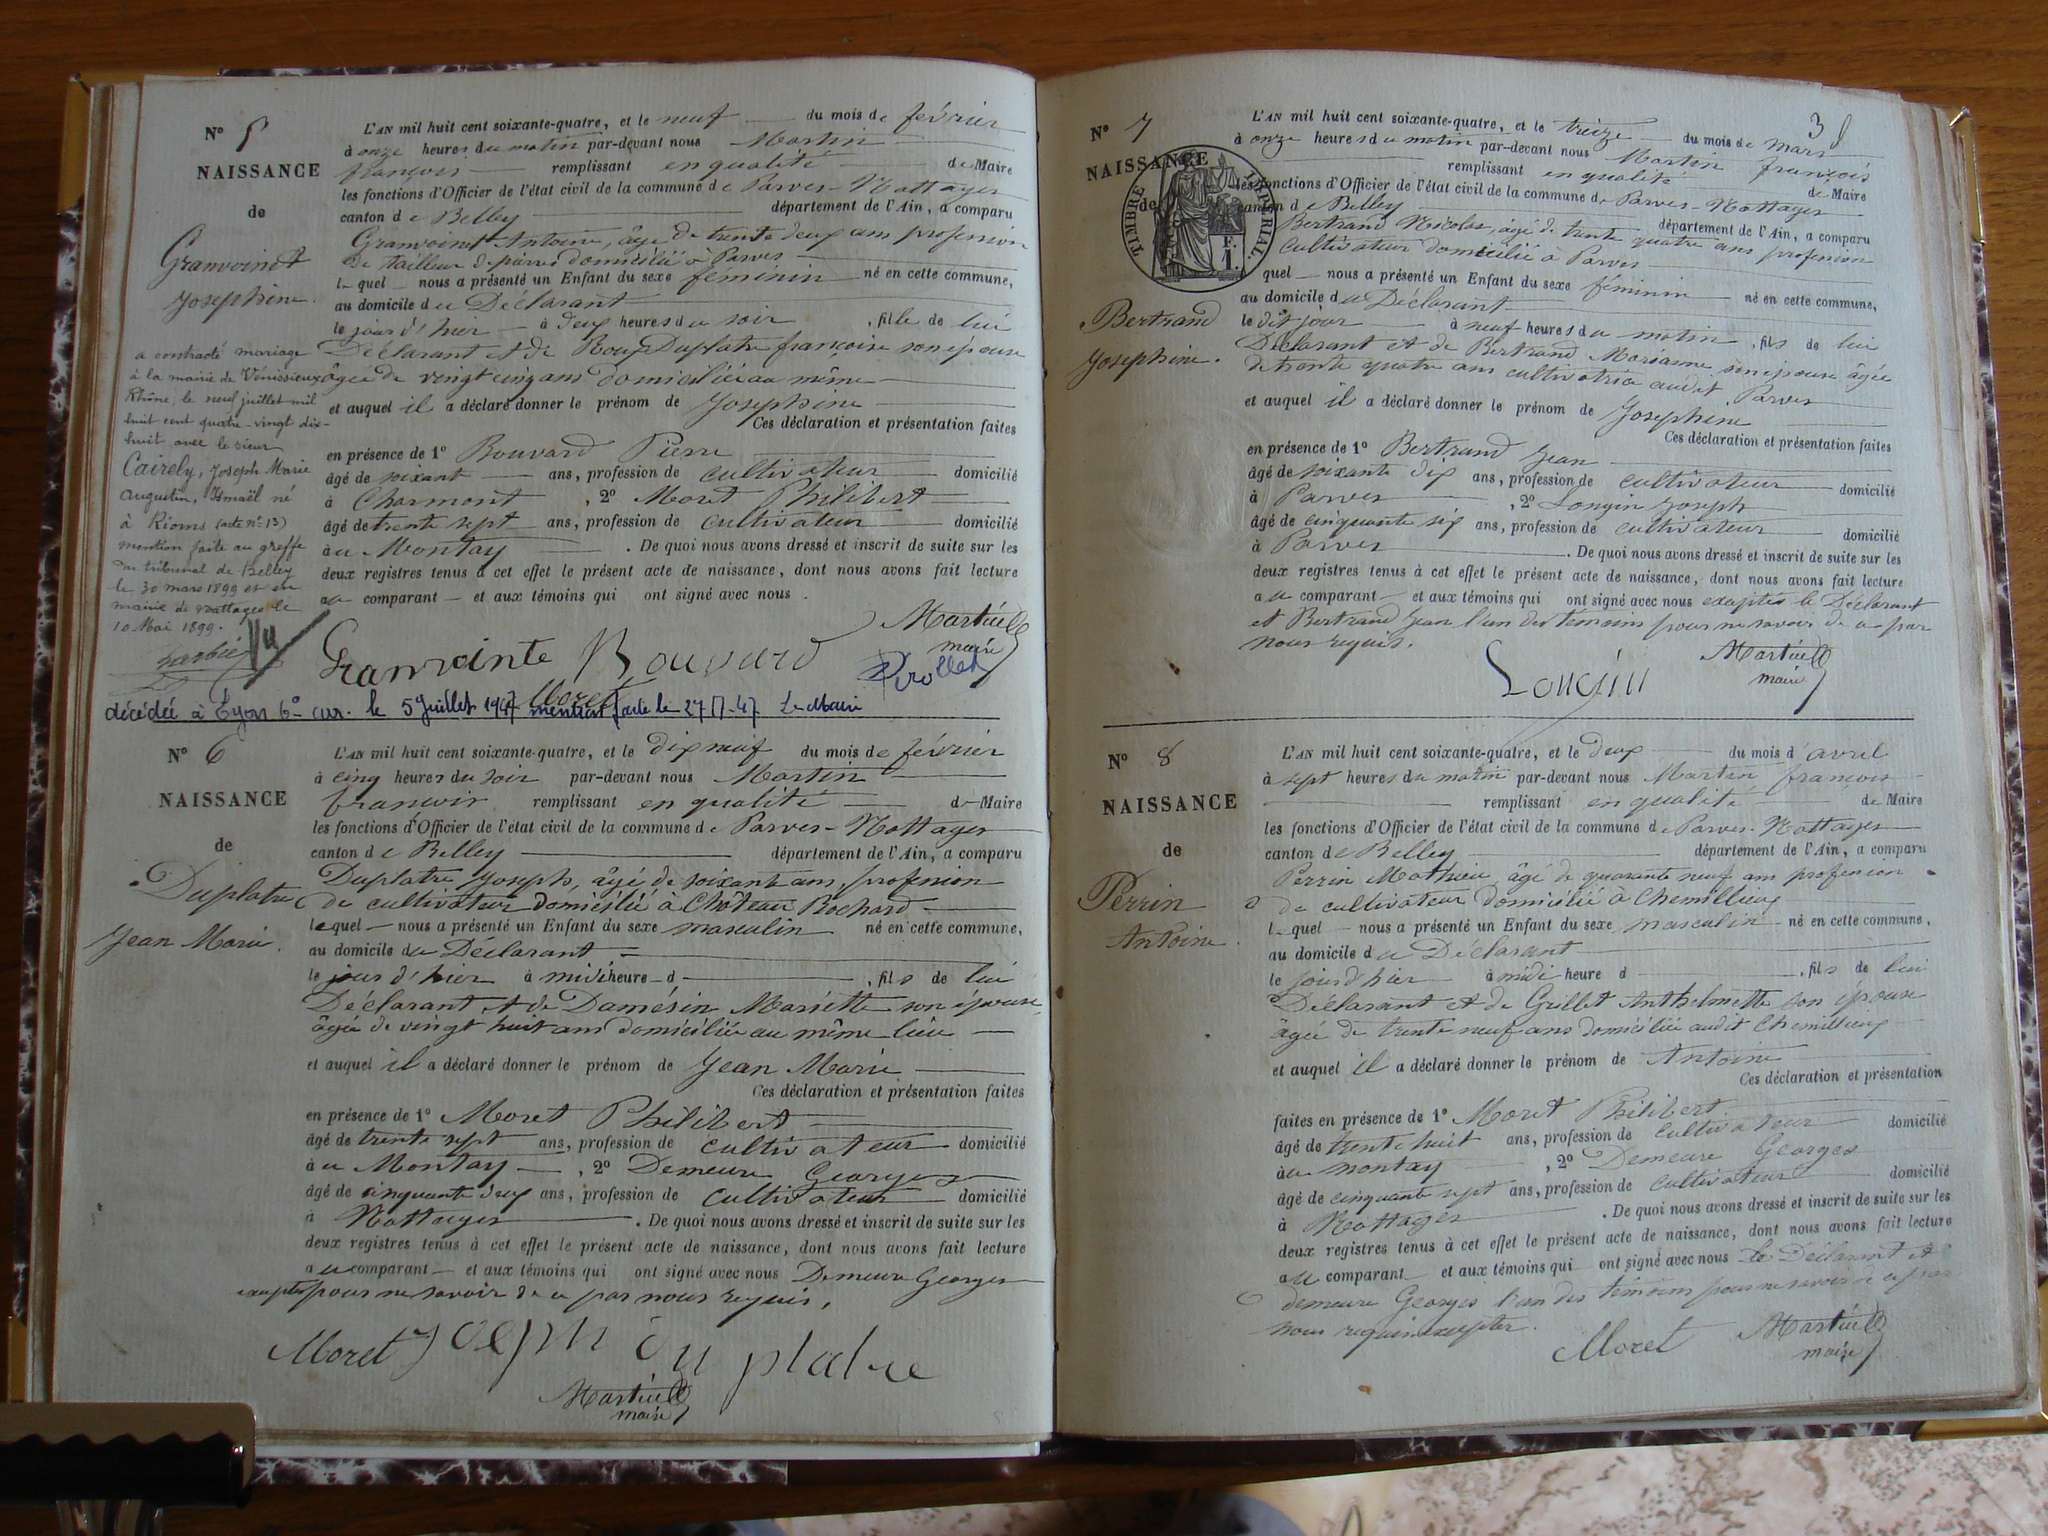 N° 5
NAISSANCE
de
Granvoinet
Josephine.
a contracté mariage
à la mairie de Vénissieux
Rhône, le neuf juillet mil
huit cent quatre-vingt dix-
huit avec le sieur
Cairely, Joseph Marie
Augustin, Ismaël né
à Rioms (acte n° 13)
mention faite au greffe
du tribunal de Belley
le 30 mars 1899 et en
mairie de Nattages le
10 Mai 1899.
Vu
L'AN mil huit cent soixante-quatre, et le neuf du mois de février
à onze heures du matin par-devant nous Martin
françois remplissant en qualité de Maire
les fonctions d'Officier de l'état civil de la commune de Parves-Nattages
canton de Belley département de l'Ain, a comparu
Granvoinet Antoine, âgé de trente deux ans profession
de tailleur de pierres domicilié à Parves
lequel nous a présenté un Enfant du sexe féminin né en cette commune,
au domicile du Déclarant
le jour d'hier à deux heures du soir, fille de lui
Déclarant et de Roux Duplatre françoise son épouse
âgée de vingt cinq ans domiciliée au même
et auquel il a déclaré donner le prénom de Josephine
Ces déclaration et présentation faites
en présence de 1° Bouvard Pierre
âgé de soixante ans, profession de cultivateur domicilié
à Charmont, 2° Moret Philibert
âgé de trente sept ans, profession de cultivateur domicilié
à au Montay. De quoi nous avons dressé et inscrit de suite sur les
deux registres tenus à cet effet le présent acte de naissance, dont nous avons fait lecture
au comparant et aux témoins qui ont signé avec nous.
Granvointe Bouvard Martin
maire
Moret Pirollet
décédée à Lyon 6° arr. le 5 Juillet 1947 mention faite le 27-7-47 Le Maire
N° 6
NAISSANCE
de
Duplatre
Jean Marie.
L'AN mil huit cent soixante-quatre, et le dix neuf du mois de février
à cinq heures du soir par-devant nous Martin
françois remplissant en qualité de Maire
les fonctions d'Officier de l'état civil de la commune de Parves-Nattages
canton de Belley département de l'Ain, a comparu
Duplatre Joseph, âgé de soixante ans, profession
de cultivateur domicilié à Château Bochard
lequel nous a présenté un Enfant du sexe masculin né en cette commune,
au domicile du Déclarant
le jour d'hier à midi heure d, fils de lui
Déclarant et de Damésin Mariette son épouse,
âgée de vingt huit ans domiciliée au même lieu
et auquel il a déclaré donner le prénom de Jean Marie
Ces déclaration et présentation faites
en présence de 1° Moret Philibert
âgé de trente sept ans, profession de cultivateur domicilié
à au Montay, 2° Demeure Georges
âgé de cinquante deux ans, profession de cultivateur domicilié
à Nattages. De quoi nous avons dressé et inscrit de suite sur les
deux registres tenus à cet effet le présent acte de naissance, dont nous avons fait lecture
au comparant et aux témoins qui ont signé avec nous Demeure Georges
excepté pour ne savoir de ce par nous requis,
Moret Joseph duplatre
Martin
maire
3
N° 7
NAISSANCE
de
TIMBRE IMPERIAL
1 F.
Bertrand
Josephine.
L'AN mil huit cent soixante-quatre, et le treize du mois de mars
à onze heures du matin par-devant nous Martin françois
remplissant en qualité de Maire
les fonctions d'Officier de l'état civil de la commune de Parves-Nattages
canton de Belley département de l'Ain, a comparu
Bertrand Nicolas, âgé de trente quatre ans profession
cultivateur domicilié à Parves
quel nous a présenté un Enfant du sexe féminin né en cette commune,
au domicile du Déclarant
le dit jour à neuf heures du matin, fils de lui
Déclarant et de Bertrand Marianne son épouse âgée
de trente quatre ans cultivatrice audit Parves
et auquel il a déclaré donner le prénom de Josephine
Ces déclaration et présentation faites
en présence de 1° Bertrand Jean
âgé de soixante dix ans, profession de cultivateur domicilié
à Parves, 2° Longin Joseph
âgé de cinquante six ans, profession de cultivateur domicilié
à Parves. De quoi nous avons dressé et inscrit de suite sur les
deux registres tenus à cet effet le présent acte de naissance, dont nous avons fait lecture
au comparant et aux témoins qui ont signé avec nous exceptés le Déclarant
et Bertrand Jean l'un des témoins pour ne savoir de ce par
nous requis.
Longin Martin
maire
N° 8
NAISSANCE
de
Perrin
Antoine.
L'AN mil huit cent soixante-quatre, et le deux du mois d'avril
à sept heures du matin par-devant nous Martin françois
remplissant en qualité de Maire
les fonctions d'Officier de l'état civil de la commune de Parves-Nattages
canton de Belley département de l'Ain, a comparu
Perrin Mathieu, âgé de quarante neuf ans profession
de cultivateur domicilié à Chemillieu
lequel nous a présenté un Enfant du sexe masculin né en cette commune,
au domicile du Déclarant
le jour d'hier à midi heure d, fils de lui
Déclarant et de Grillet Anthelmette son épouse
âgée de trente neuf ans domiciliée audit Chemillieu
et auquel il a déclaré donner le prénom de Antoine
Ces déclaration et présentation
faites en présence de 1° Moret Philibert
âgé de trente huit ans, profession de cultivateur domicilié
à au montay, 2° Demeure Georges
âgé de cinquante sept ans, profession de cultivateur domicilié
à Nattages. De quoi nous avons dressé et inscrit de suite sur les
deux registres tenus à cet effet le présent acte de naissance, dont nous avons fait lecture
au comparant et aux témoins qui ont signé avec nous le Déclarant et
demeure Georges l'un des témoins pour ne savoir de ce par
nous requis exceptés.
Moret Martin
maire